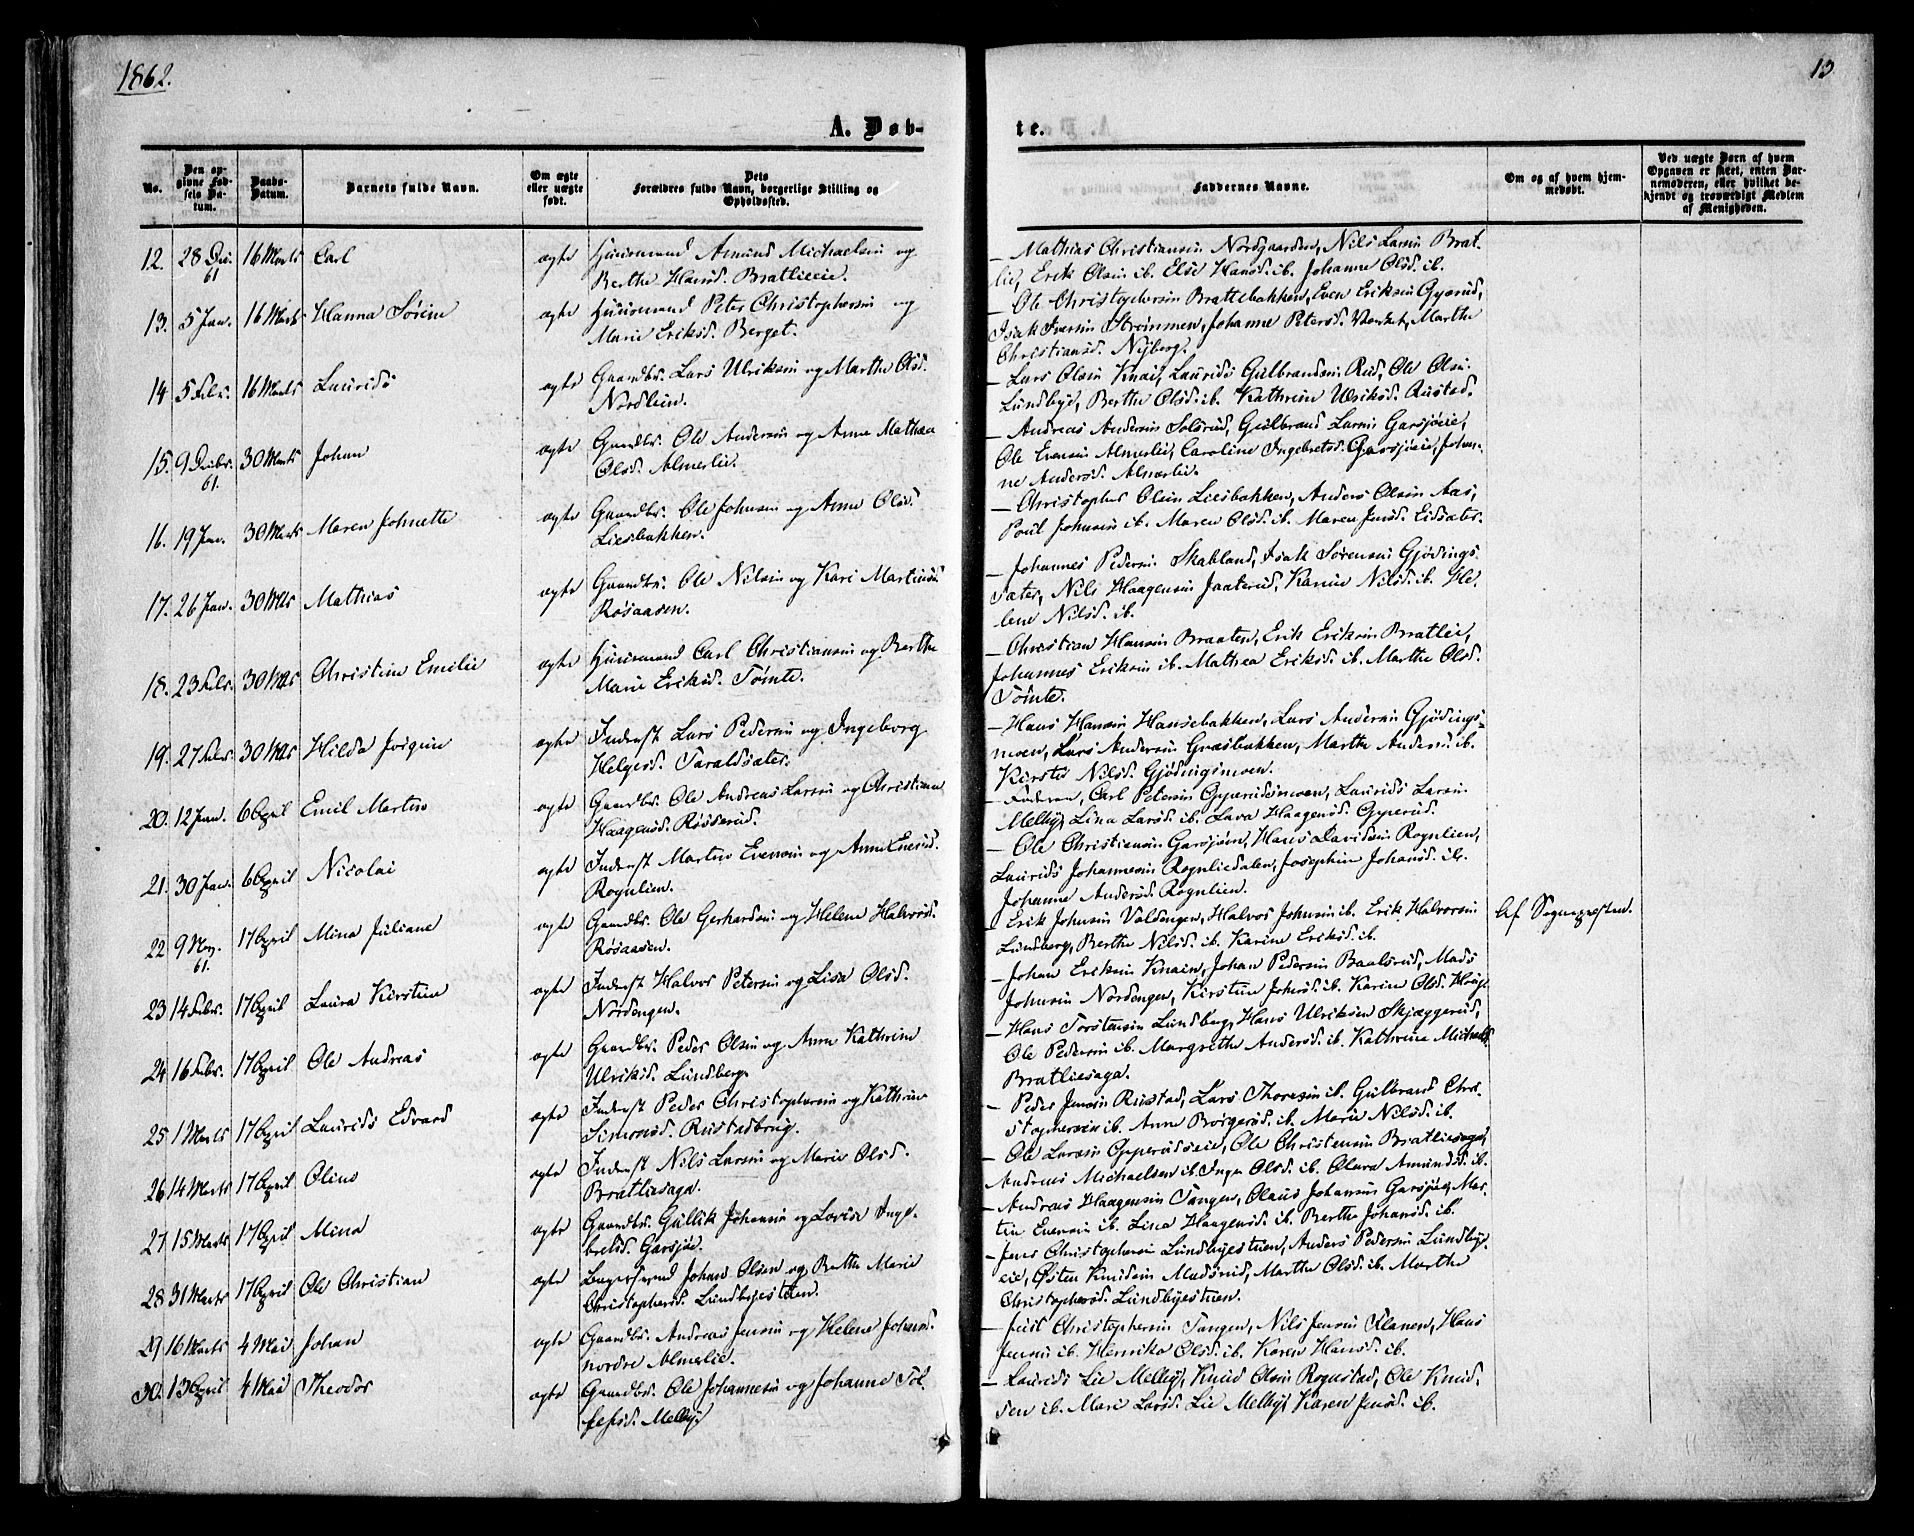 1862.
10
A. Døb-
te.
No.
Den opgivne Fødsels Datum.
Daabs-Datum.
Barnets fulde Navn.
Om ægte eller uægte født.
Dets Forældres fulde Navn, borgerlige Stilling og Opholdssted.
Faddernes Navne.
Om og af hvem hjemmedøbt.
Ved uægte Børn af hvem Opgaven er skeet, enten Barnemoderen, eller hvilket bekjendt og troværdigt Medlem af Menigheden.
12. 28 Dec. 61 16 Marts Carl ægte Huusmand Amund Michaelsen og
Berthe Hansd. Bratlieeie.
— Mathias Christiansen Nordgaarden, Nils Larsen Brat-
lie, Erik Olsen ib. Else Hansd. ib. Johanne Olsd. ib.
13. 5 Jan. 16 Marts Hanna Sofie ægte Huusmand Peter Christophersen og
Marie Eriksd. Berget.
— Ole Christophersen Brattebakken, Even Eriksen Gyperud,
Isak Iversen Strømmen, Johanne Petersd. Berget, Marthe
Christiansd. Nyberg.
14 5 Febr. 16 Marts Laurids ægte Gaardbr. Lars Ulriksen og Marthe Olsd.
Nordlien.
— Lars Olsen Knai, Laurids Gulbrandsen Rud, Ole Olsen
Lundbye, Berthe Olsd. ib. Kathrine Ulriksd. Rustad.
15. 9 Decbr. 61. 30 Marts Johan ægte Gaardbr. Ole Andersen og Anne Mathea
Olsd. Almerlie.
— Andreas Andersen Solerud, Gulbrand Larsen Garsjøeie,
Ole Evensen Almerlie, Caroline Ingebretsd. Garsjøeie, Johan-
ne Andersd. Almerlie.
16. 19 Jan. 30 Marts Maren Johnette ægte Gaardbr. Ole Johnsen og Anne Olsd.
Liesbakken.
— Christopher Olsen Liesbakken, Anders Olsen Aas,
Poul Johnsen ib. Maren Olsd. ib. Maren Jensd. Eidsæter.
17. 26 Jan. 30 Mts Mathias ægte Gaardbr. Ole Nilsen og Kari Martinsd.
Røsaasen.
— Johannes Pedersen Skabland, Isak Sørensen Gjødings-
sæter, Nils Haagensen Jaaterud, Karine Nilsd. ib. He-
lene Nilsd. ib.
18. 23 Febr. 30 Mts Christine Emilie ægte Huusmand Carl Christiansen og Berthe
Marie Eriksd. Tømte.
— Christian Hansen Braaten, Erik Eriksen Bratlie,
Johannes Eriksen ib. Mathea Eriksd. ib. Marthe Olsd.
Tømte.
19. 27 Febr. 30 Mts Hilda Josefine ægte Inderst Lars Pedersen og Ingeborg
Helgesd. Taraldsæter.
— Hans Hansen Hansebakken, Lars Andersen Gjødings-
moen, Lars Andersen Græsbakken, Marthe Andersd. ib.
Kirsti Nilsd. Gjødingsmoen.
20. 12 Jan. 6 April Emil Martin ægte Gaardbr. Ole Andreas Larsen og Christiane
Haagensd. Røsserud.
— Faderen, Carl Petersen Gyperudsmoen, Laurids Larsen
Melby, Lina Larsd. ib. Lava Haagensd. Gyperud.
21. 30 Jan. 6 April Nicolai ægte Inderst Martin Evensen og Anne Enersd.
Rognlien.
— Ole Christiansen Garsjøen, Hans Davidsen Rognlien,
Laurids Johannesen Rognliedalen, Josephine Johansd. ib.
Johanne Andersd. Rognlien.
22 9 Nov. 61. 17 April Mina Juliane ægte Gaardbr. Ole Gerhardsen og Helene Halvorsd.
Røsaasen.
— Erik Johnsen Valdengen, Halvor Johnsen ib. Erik Halvorsen
Lundberg, Berthe Nilsd. ib. Karine Eriksd. ib.
Af Sognepresten.
23 14 Febr. 17 April Laura Kirstine ægte Inderst Halvor Petersen og Lisa Olsd.
Nordengen.
— Johan Eriksen Knain, Johan Pedersen Baalsrud, Mads
Johnsen Nordengen, Kirstine Johnsd. ib. Karin Olsd.
24 16 Febr. 17 April Ole Andreas ægte Gaardbr. Peder Olsen og Anne Kathrine
Ulriksd. Lundberg.
— Hans Torstensen Lundberg, Hans Ulriksen Skjæggerud,
Ole Pedersen ib. Margrethe Andersd. ib. Kathrine Michaelsd.
Bratliesaga.
25 1 Marts 17 April Laurids Edvard ægte Inderst Peder Christophersen og Kathrine
Simensd. Rustadbrug.
— Peder Jensen Rustad, Lars Thoresen ib. Gulbrand Chri-
stophersen ib. Anne Børgersd. ib. Marie Nilsd. ib.
26 14 Marts 17 April Oline ægte Inderst Nils Larsen og Marie Olsd.
Bratliesaga.
— Ole Larsen Gyperudseie, Ole Christensen Bratliesaga,
Andreas Michaelsen ib. Inge Olsd. ib. Olava Amundsd. ib.
27 15 Marts 17 April Mina ægte Gaardbr. Gullik Johansen og Lovise Inge-
bretsd. Garsjøe.
— Andreas Haagensen Tangen, Olaus Johansen Garsjøe, Mar-
tin Evensen ib. Lina Haagensd. ib. Berthe Johansd. ib.
28 31 Marts 17 April Ole Christian ægte Leyersvend Johan Olsen og Berthe Marie
Christophersd. Lundbyestuen.
— Jens Christophersen Lundbyestuen, Anders Pedersen Lundbye-
eie, Østen Knudsen Madsrud, Marthe Olsd. ib. Marthe
Christophersd. Lundbyestuen.
29 16 Marts 4 Mai Johan ægte Gaardbr. Andreas Jensen og Helene Johansd.
nordre Almerlie.
— Juul Christophersen Tangen, Nils Jensen Klanen, Hans
Jensen ib. Henrike Olsd. ib. Karen Hansd. ib.
30. 13 April 4 Mai Theodor ægte Gaardbr. Ole Johannesen og Johanne Tol-
lefsd. Melby
— Laurids Lie Melby, Knud Olsen Rognstad, Ole Knud-
sen ib. Mari Larsd. Lie Melby, Karen Jensd. ib.